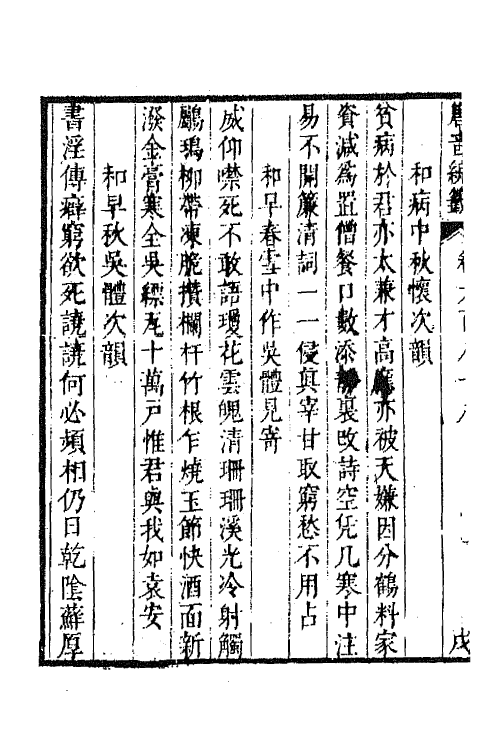 唐音統籖 卷六百八十八 戊
和病中秋懷次韻
貧病於君亦太兼才高應亦被天嫌因分鶴料家
資減爲置僧餐口數添靜裏改詩空凭几寒中注
易不開簾清詞一一侵真宰甘取窮愁不用占
和早春雪中作吳體見寄
威仰噤死不敢語瓊花雲魄清珊珊溪光冷射觸
鸀鳿柳帶凍脆攢欄杆竹根乍燒玉節快酒面新
潑金膏寒全吳縹瓦十萬戶惟君與我如袁安
和早秋吳體次韻
書淫傳癖窮欲死譊譊何必頻相仍日乾陰蘚厚